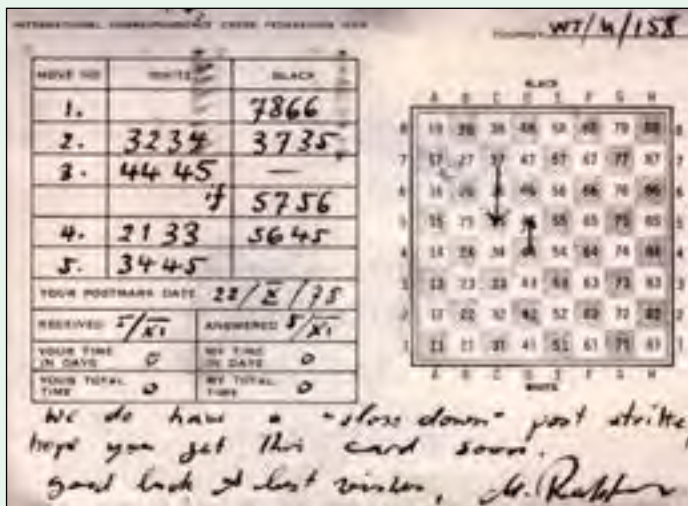 INTERNATIONAL CORRESPONDENCE CHESS FEDERATION
WT/M/158
MOVE NO WHITE BLACK
1. 7866
2. 3234 3735
3. 4445 —
if 5756
4. 2133 5645
5. 3445
YOUR POSTMARK DATE 22/X/75
RECEIVED 5/XI ANSWERED 5/XI
YOUR TIME IN DAYS 0 MY TIME IN DAYS 0
YOUR TOTAL TIME 0 MY TOTAL TIME 0
BLACK
A B C D E F G H
8 18 28 38 48 58 68 78 88 8
7 17 27 37 47 57 67 77 87 7
6 16 26 46 56 66 76 86 6
5 15 25 55 65 75 85 5
4 14 24 34 54 64 74 84 4
3 13 23 33 43 53 63 73 83 3
2 12 22 32 42 52 62 72 82 2
1 11 21 31 41 51 61 71 81 1
A B C D E F G H
WHITE
We do have a "slow down" post strike
hope you get this card soon.
good luck & best wishes, M.